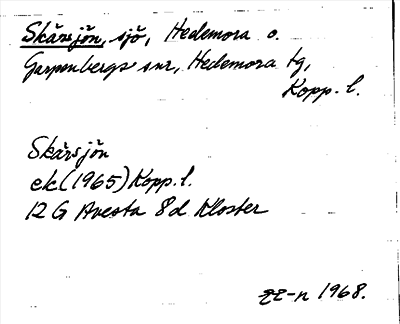 Skärsjön, sjö, Hedemora o.
Garpenbergs snr, Hedemora tg,
Kopp. l.
Skärsjön
ek (1965) Kopp. l.
12 G Avesta 8d Kloster
ZZ-n 1968.